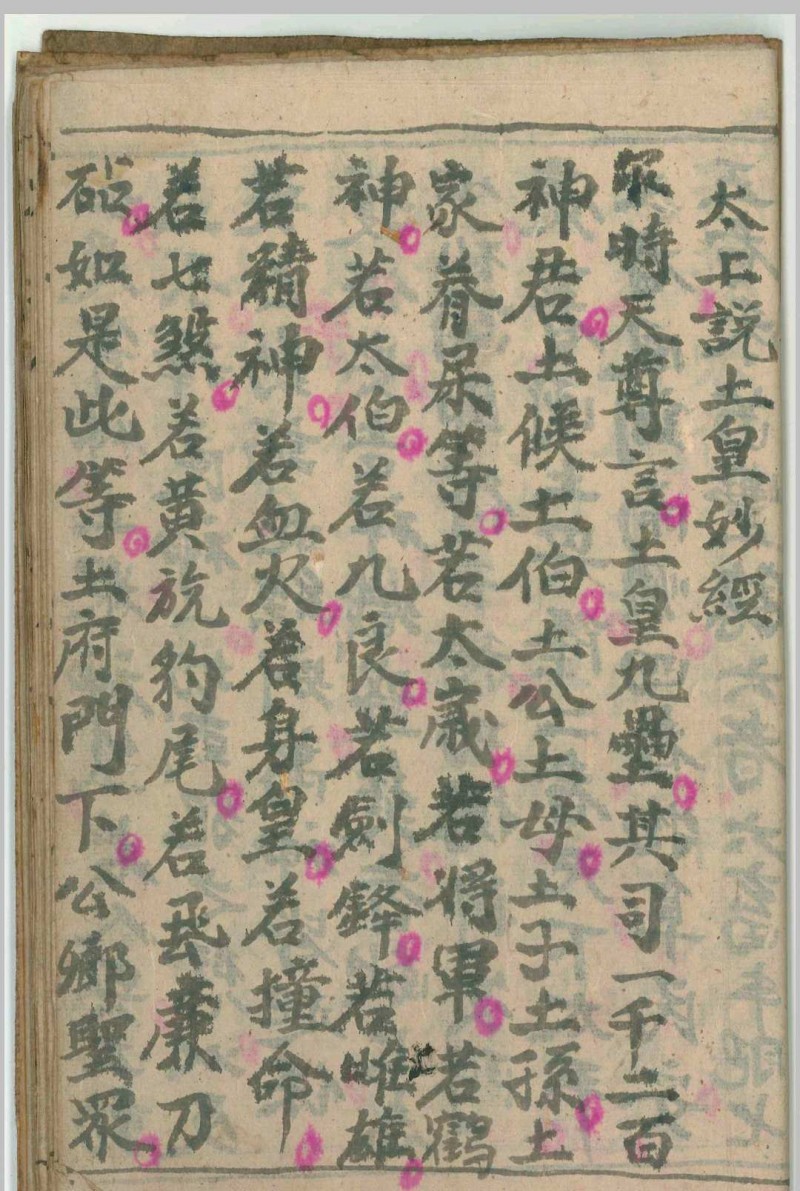 太上説土皇妙經
尔時天尊言土皇九壘其司一千二百
神君土候土伯土公土母土子土孫土
家眷屬等若太歲若將軍若鶴
神若太伯若九良若劍鋒若雌雄
若精神若血火若身皇若撞命
若七煞若黃旄豹尾若飛廉刀
砧如是此等土府門下公卿聖眾